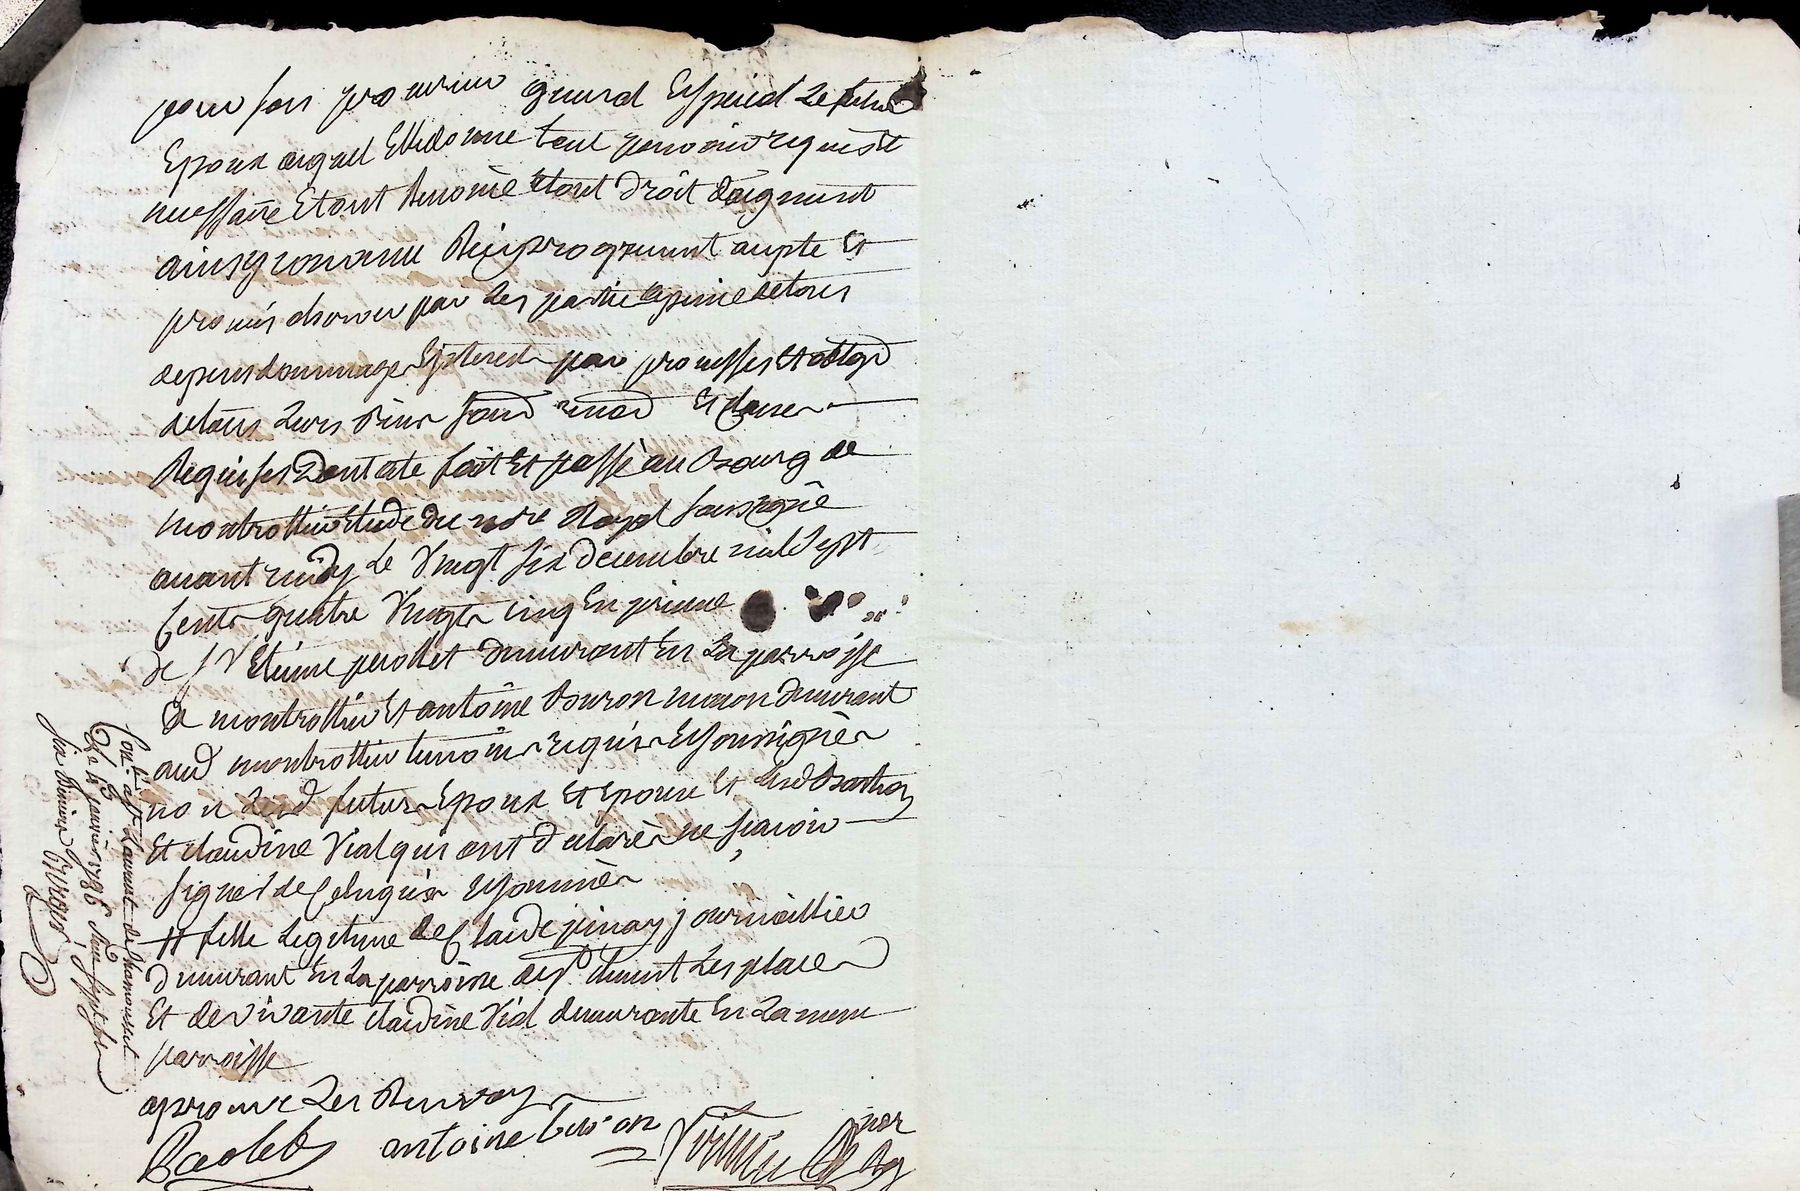 pour son procureur general Espécial Le futur
Epoux auquel Elle donne tout pouvoir requis et
necessaire Etant Emoine Et tout droit daugment
ainsy convenu Reciproquement accepte Et
promis observer par Les partie a peine de tous
depens dommages Et interest par promesses Et oblig.
de tous Leurs Biens soumd renond Et clauses
Requises Dont acte fait Et passé au Bourg de
montrottier Etude du nore Royal soussigné
avant midy Le Vingt six decembre mil Sept
Cents quatre Vingts cinq En presence
de sr Etienne perollet demeurant En La parroisse
de montrottier Et antoine Buron maçon demeurant
aud montrottier temoins requis Et soussignés
non Lesd futurs Epoux Et Epouse Et
Et claudine Vial qui ont declarés ne scavoir
signer de ce Enquis Et sommés
# fille Legitime de Claude pinay journaillier
demeurant En La parroisse de st Clement Les places
Et de vivante claudine Vial demeurante En La meme
parroisse
aprouvé Les Renvoys
antoine buron
Cont. à St Laurent de Chamousset
Le 6 janvier 1786 Reçu sept
six deniers